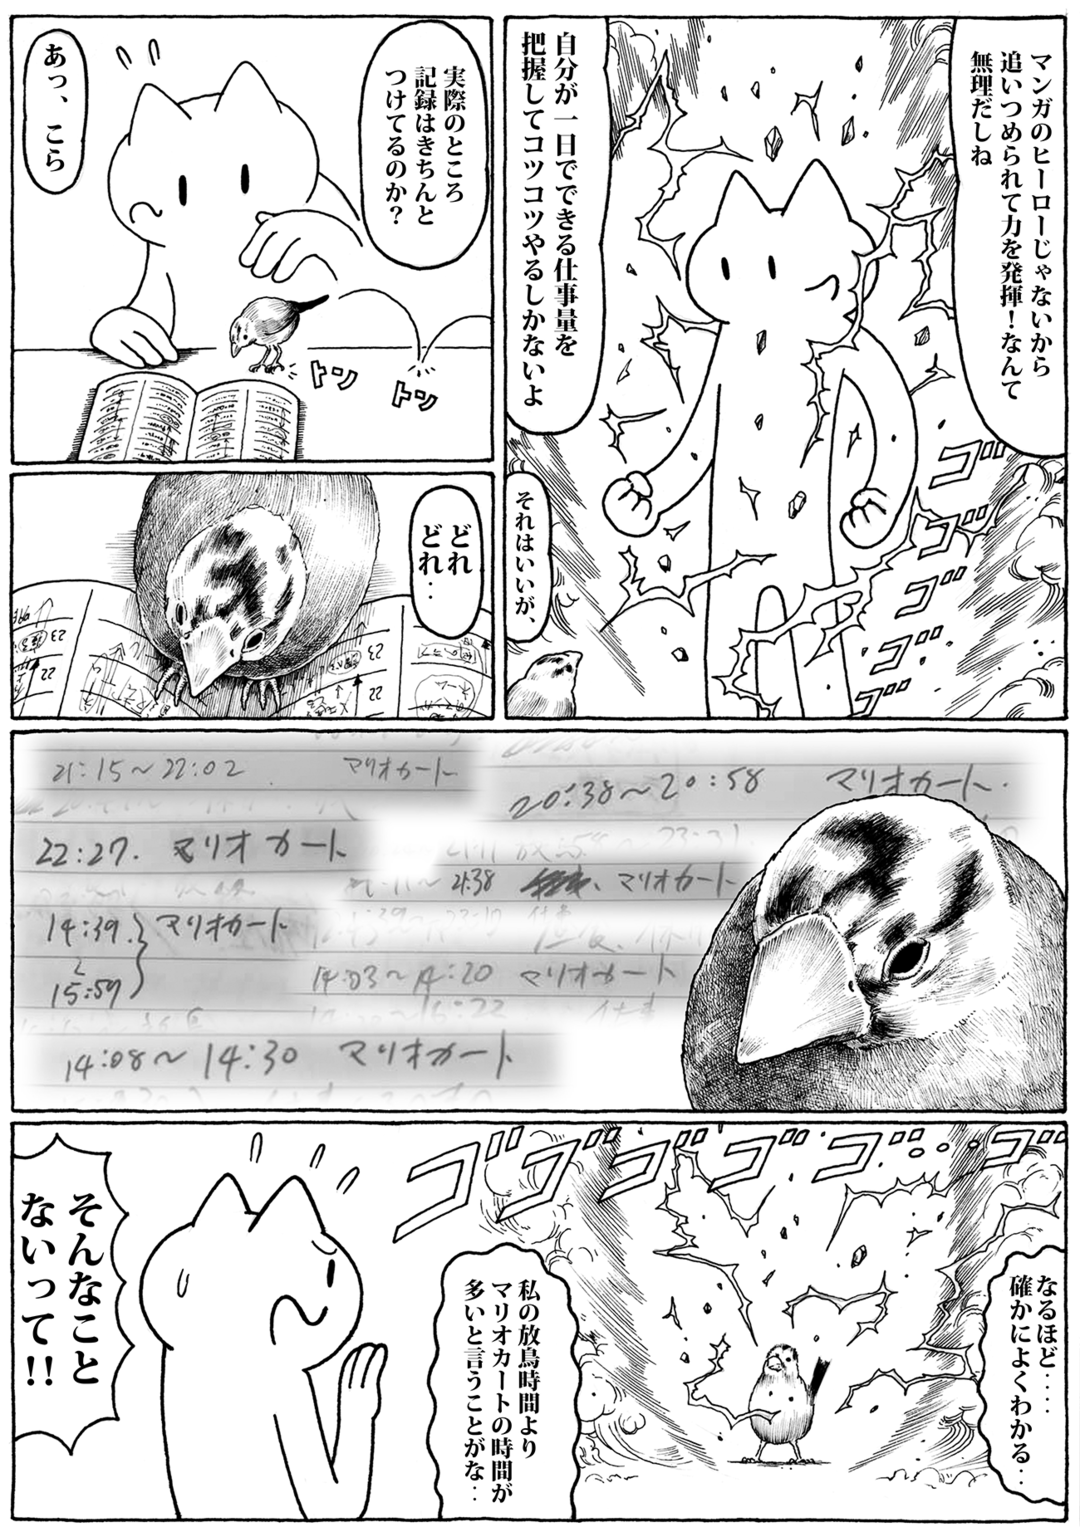 マンガのヒーローじゃないから
追いつめられて力を発揮！なんて
無理だしね
自分が一日でできる仕事量を
把握してコツコツやるしかないよ
ゴゴゴゴゴ
それはいいが、
実際のところ
記録はきちんと
つけてるのか？
あっ、こら
トン
トン
どれ
どれ‥
23
22
23
22
21:15～22:02 マリオカート
20:38～20:58 マリオカート
22:27. マリオカート
21:38 マリオカート
14:39 マリオカート
～
15:59
14:03～14:20 マリオカート
14:08～14:30 マリオカート
なるほど‥‥
確かによくわかる‥
ゴゴゴゴゴゴ
私の放鳥時間より
マリオカートの時間が
多いと言うことがな‥
そんなこと
ないって!!